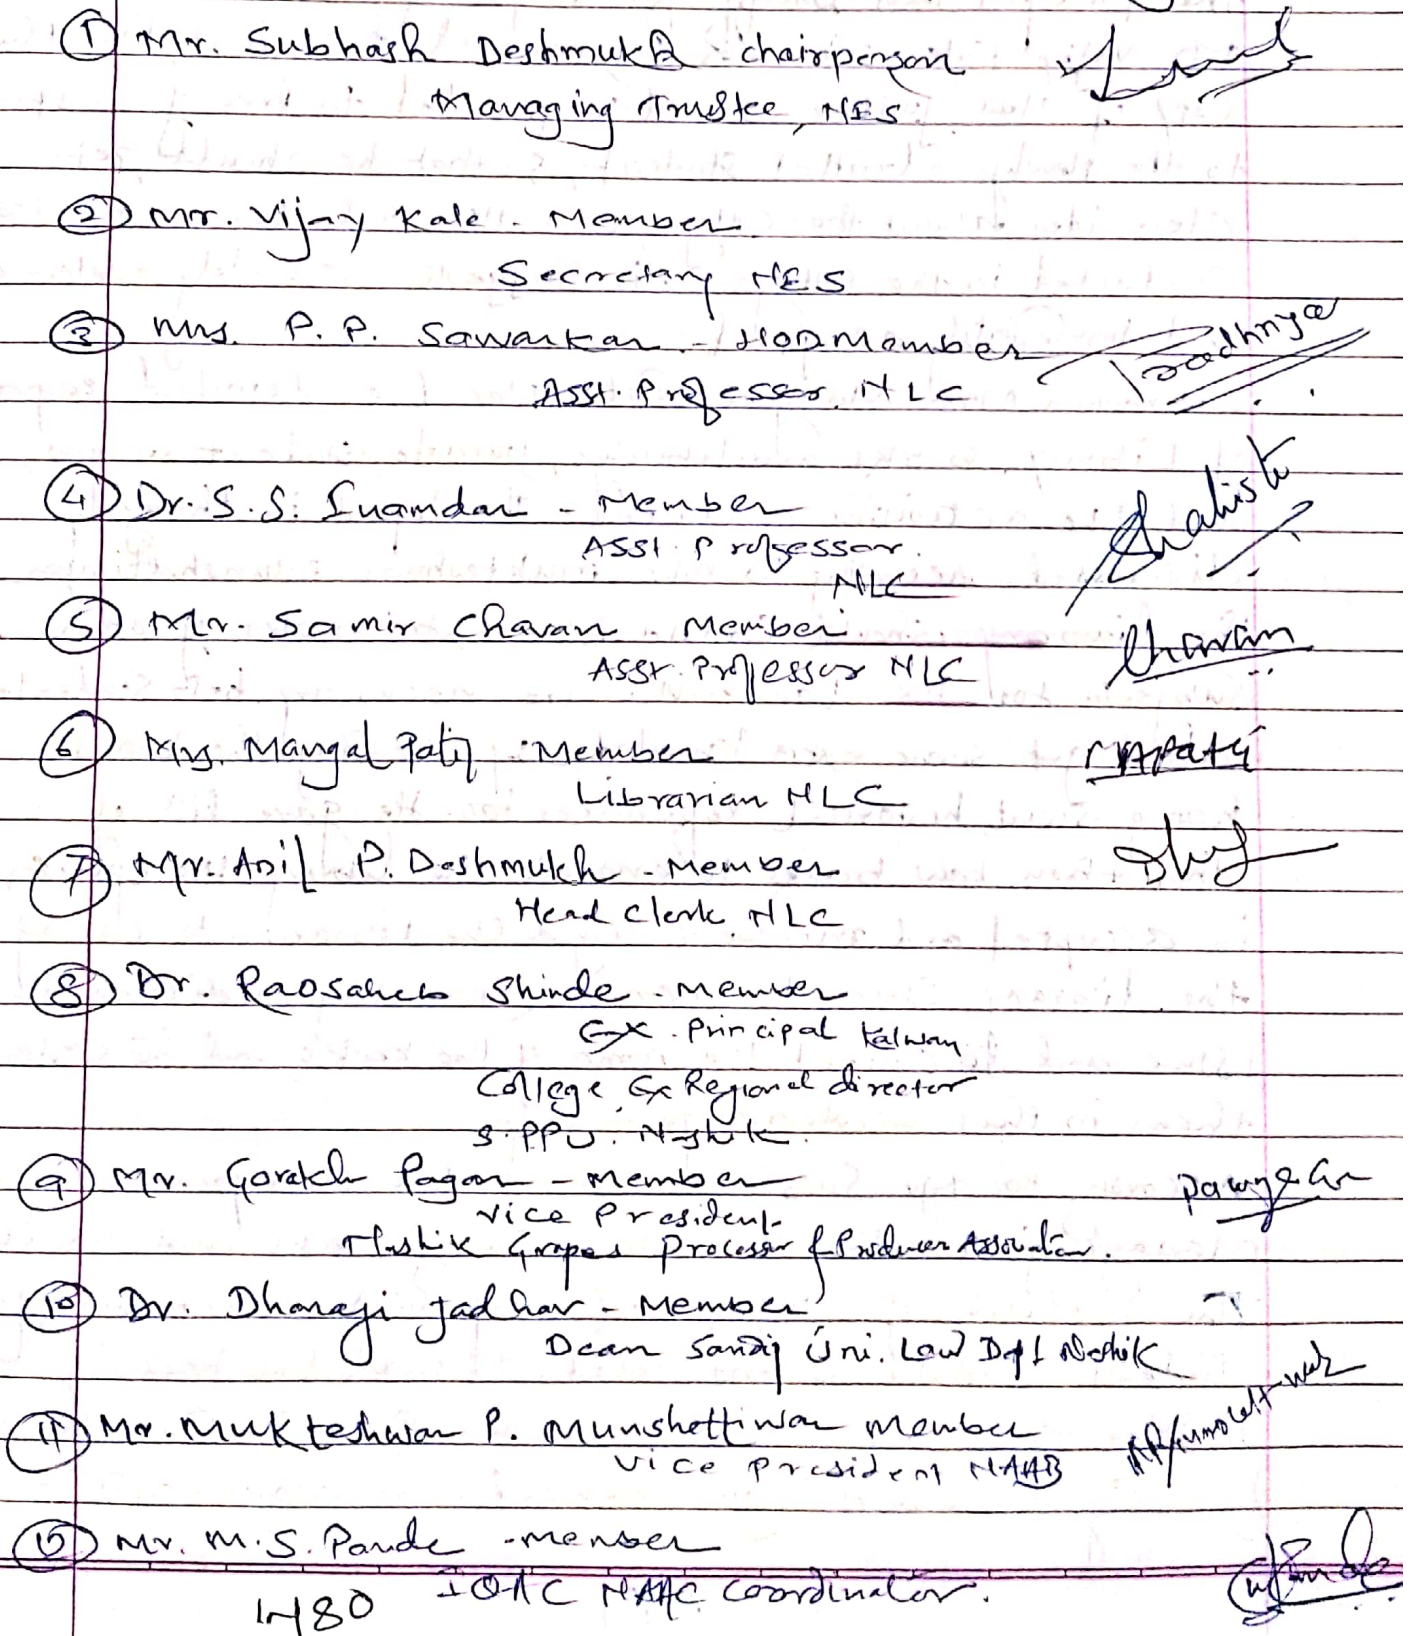 ① Mr. Subhash Deshmukh chairperson
Managing Trustee, NES
② Mr. Vijay Kale - Member
Secretary NES
③ Mrs. P. P. Sawarkar - HOD Member
Asst. Professor NLC
④ Dr. S. S. Inamdar - Member
Asst. Professor.
NLC
⑤ Mr. Samir Chavan . Member
Chavan
Asst. Professor NLC
⑥ Mrs. Mangal Patil - Member
Librarian NLC
⑦ Mr. Anil P. Deshmukh - Member
Head Clerk NLC
⑧ Dr. Raosaheb Shinde . Member
Ex. Principal Kalwan
College, Ex Regional director
S.PPU. Nashik.
⑨ Mr. Gorakh Pagar - Member
Vice President
Nashik Grapes Processor & Producer Association.
⑩ Dr. Dhanaji Jadhav - Member
Dean Sandip Uni. Law Dept Nashik
⑪ Mr. Mukteshwar P. Munshettiwar Member
Vice President
⑫ Mr. M. S. Pande - member
IQAC NAAC Coordinator.